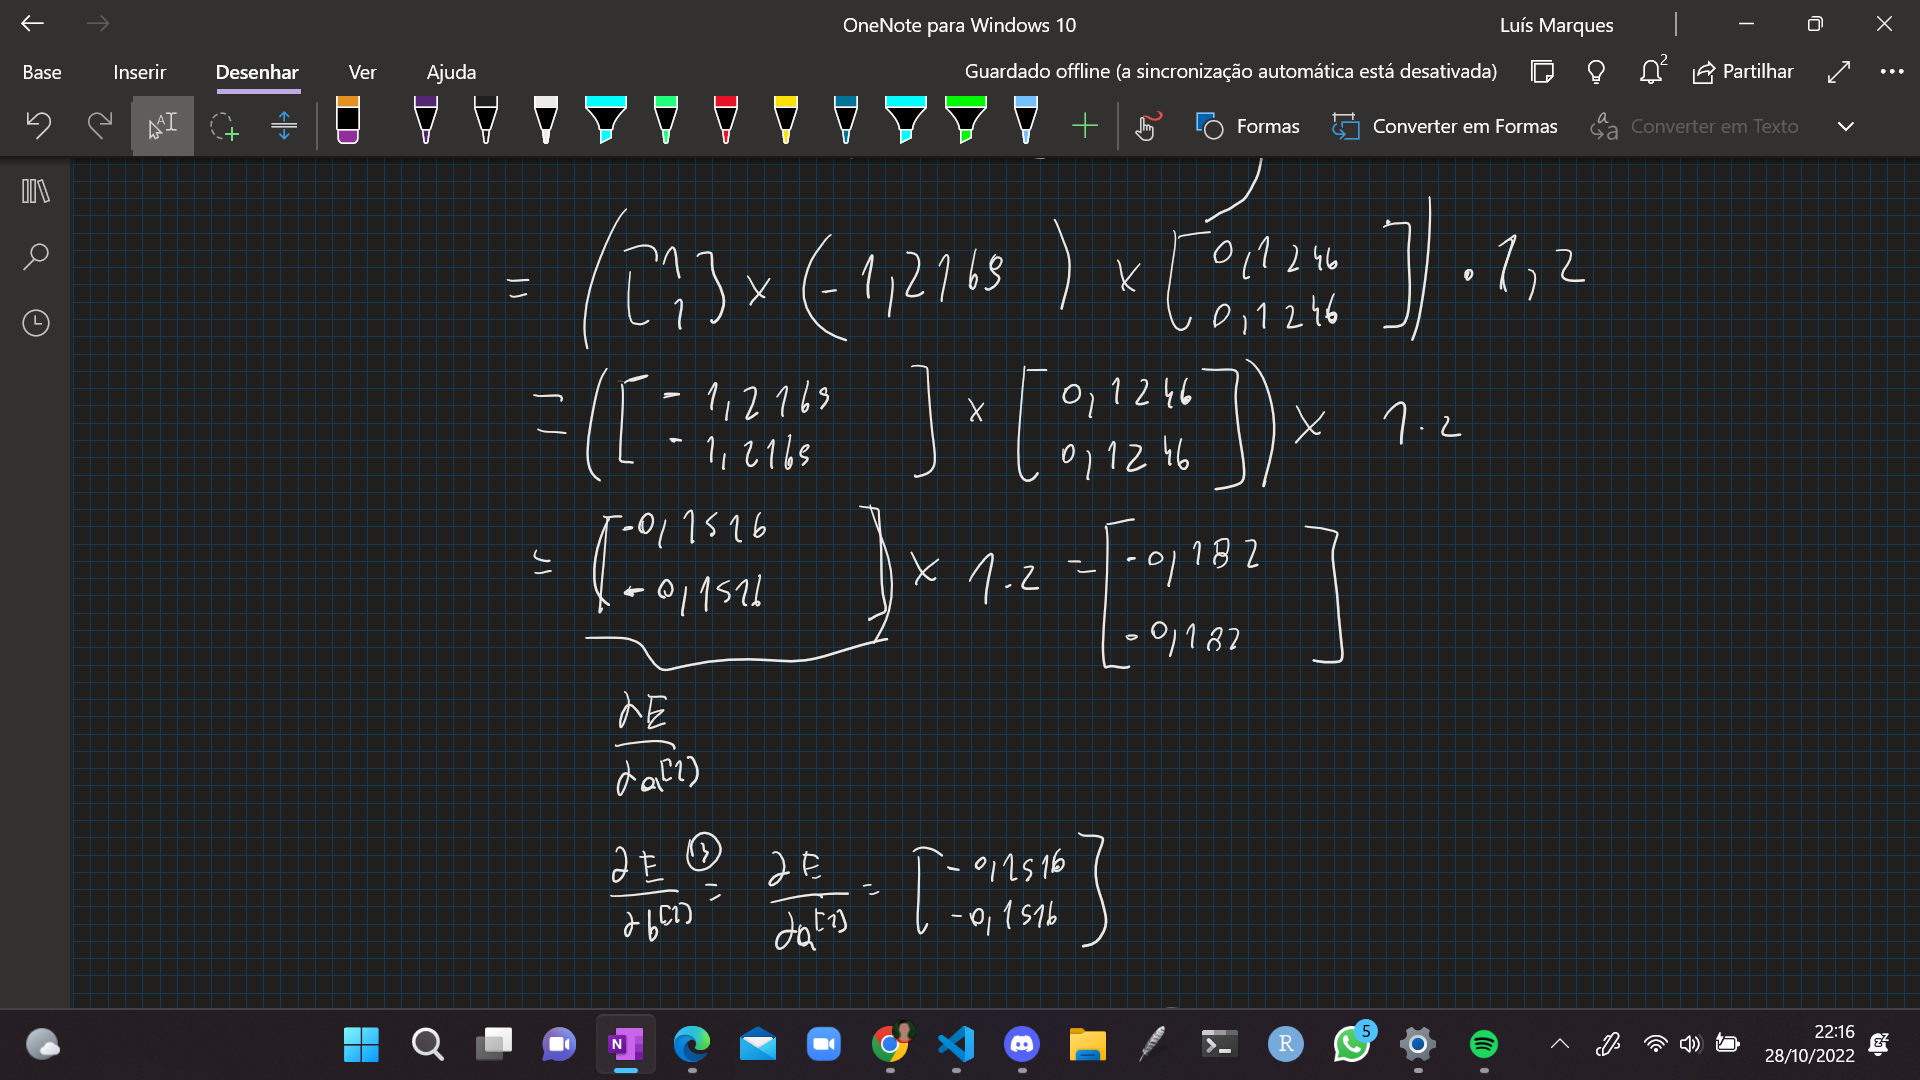 OneNote para Windows 10
Luís Marques
Base Inserir Desenhar Ver Ajuda
Guardado offline (a sincronização automática está desativada)
2
Partilhar
Formas
Converter em Formas
Converter em Texto
= ([1 1] × (-1,2169) × [0,1246 0,1246]) · 1,2
= ([-1,2169 -1,2169] × [0,1246 0,1246]) × 1.2
= [-0,1516 -0,1516] × 1.2 = [-0,182 -0,182]
∂E
∂a[1]
∂E/∂b[1] = ∂E/∂a[1] = [-0,1516 -0,1516]
N
R
5
22:16
28/10/2022